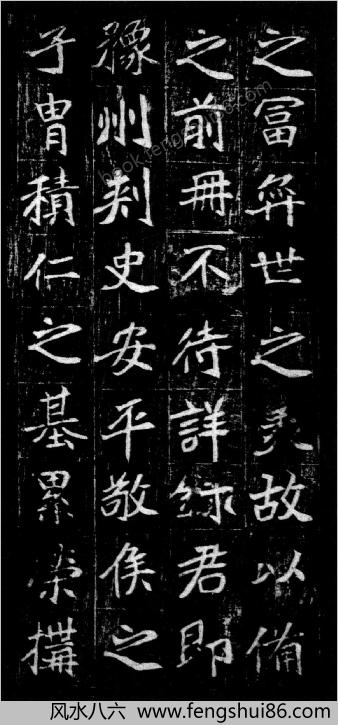 之冨弈世之羙故以備
之前冊不待詳録君即
豫州刾史安平敬侯之
子胄積仁之基累榮搆
风水八六 www.fengshui86.com